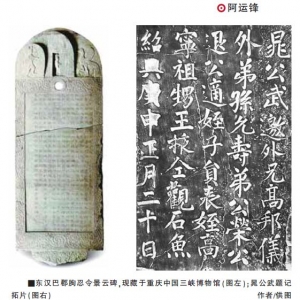 阿运锋
晁公武邀外兄高邦儀
外弟孫允壽弟公榮公
退公適姪子員表姪高
寧祖甥王掖仝觀石魚
紹興庚申正月二十日
■东汉巴郡朐忍令景云碑,现藏于重庆中国三峡博物馆(图左);晁公武题记
拓片(图右) 作者/供图